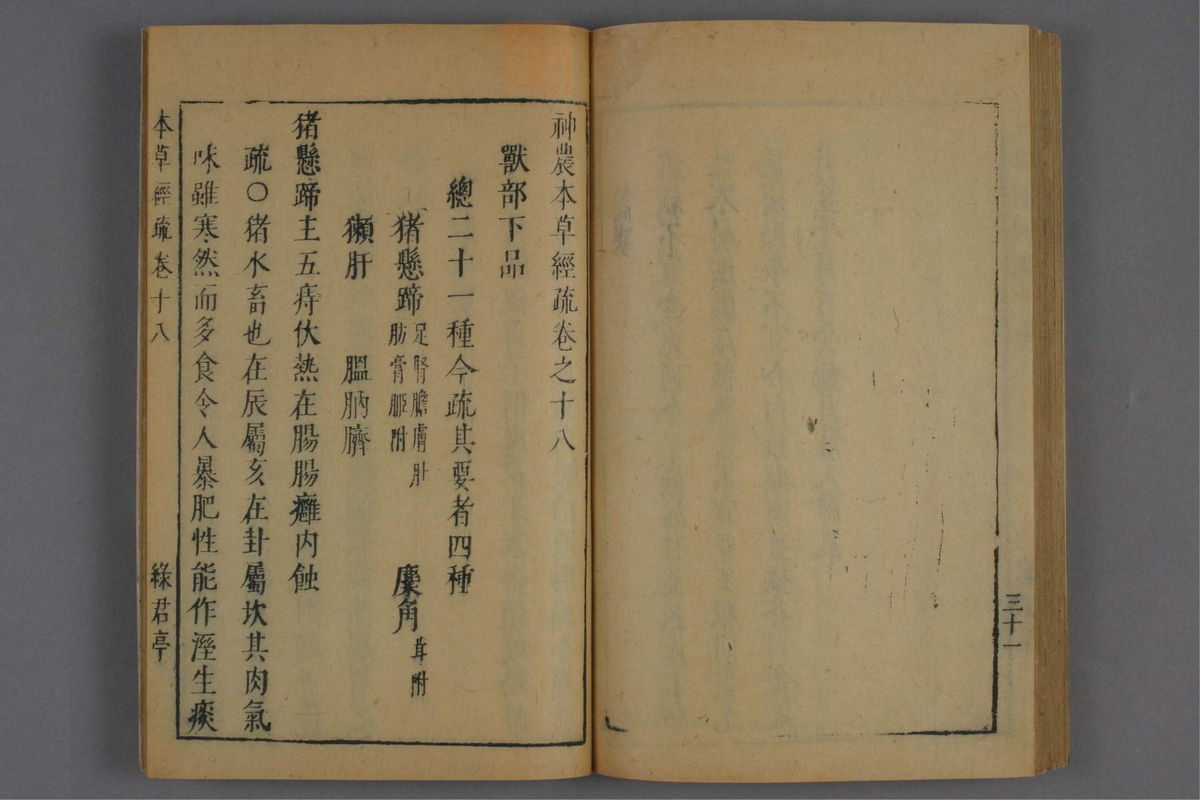 三十一
神農本草經疏卷之十八
獸部下品
總二十一種今疏其要者四種
猪懸蹄 足腎膽膚肚肪膏附 麋角 茸附
獺肝 膃肭臍
猪懸蹄主五痔伏熱在腸腸癰內蝕
疏○猪水畜也在辰屬亥在卦屬坎其肉氣
味雖寒然而多食令人暴肥性能作溼生痰
本草經疏卷十八 綠君亭